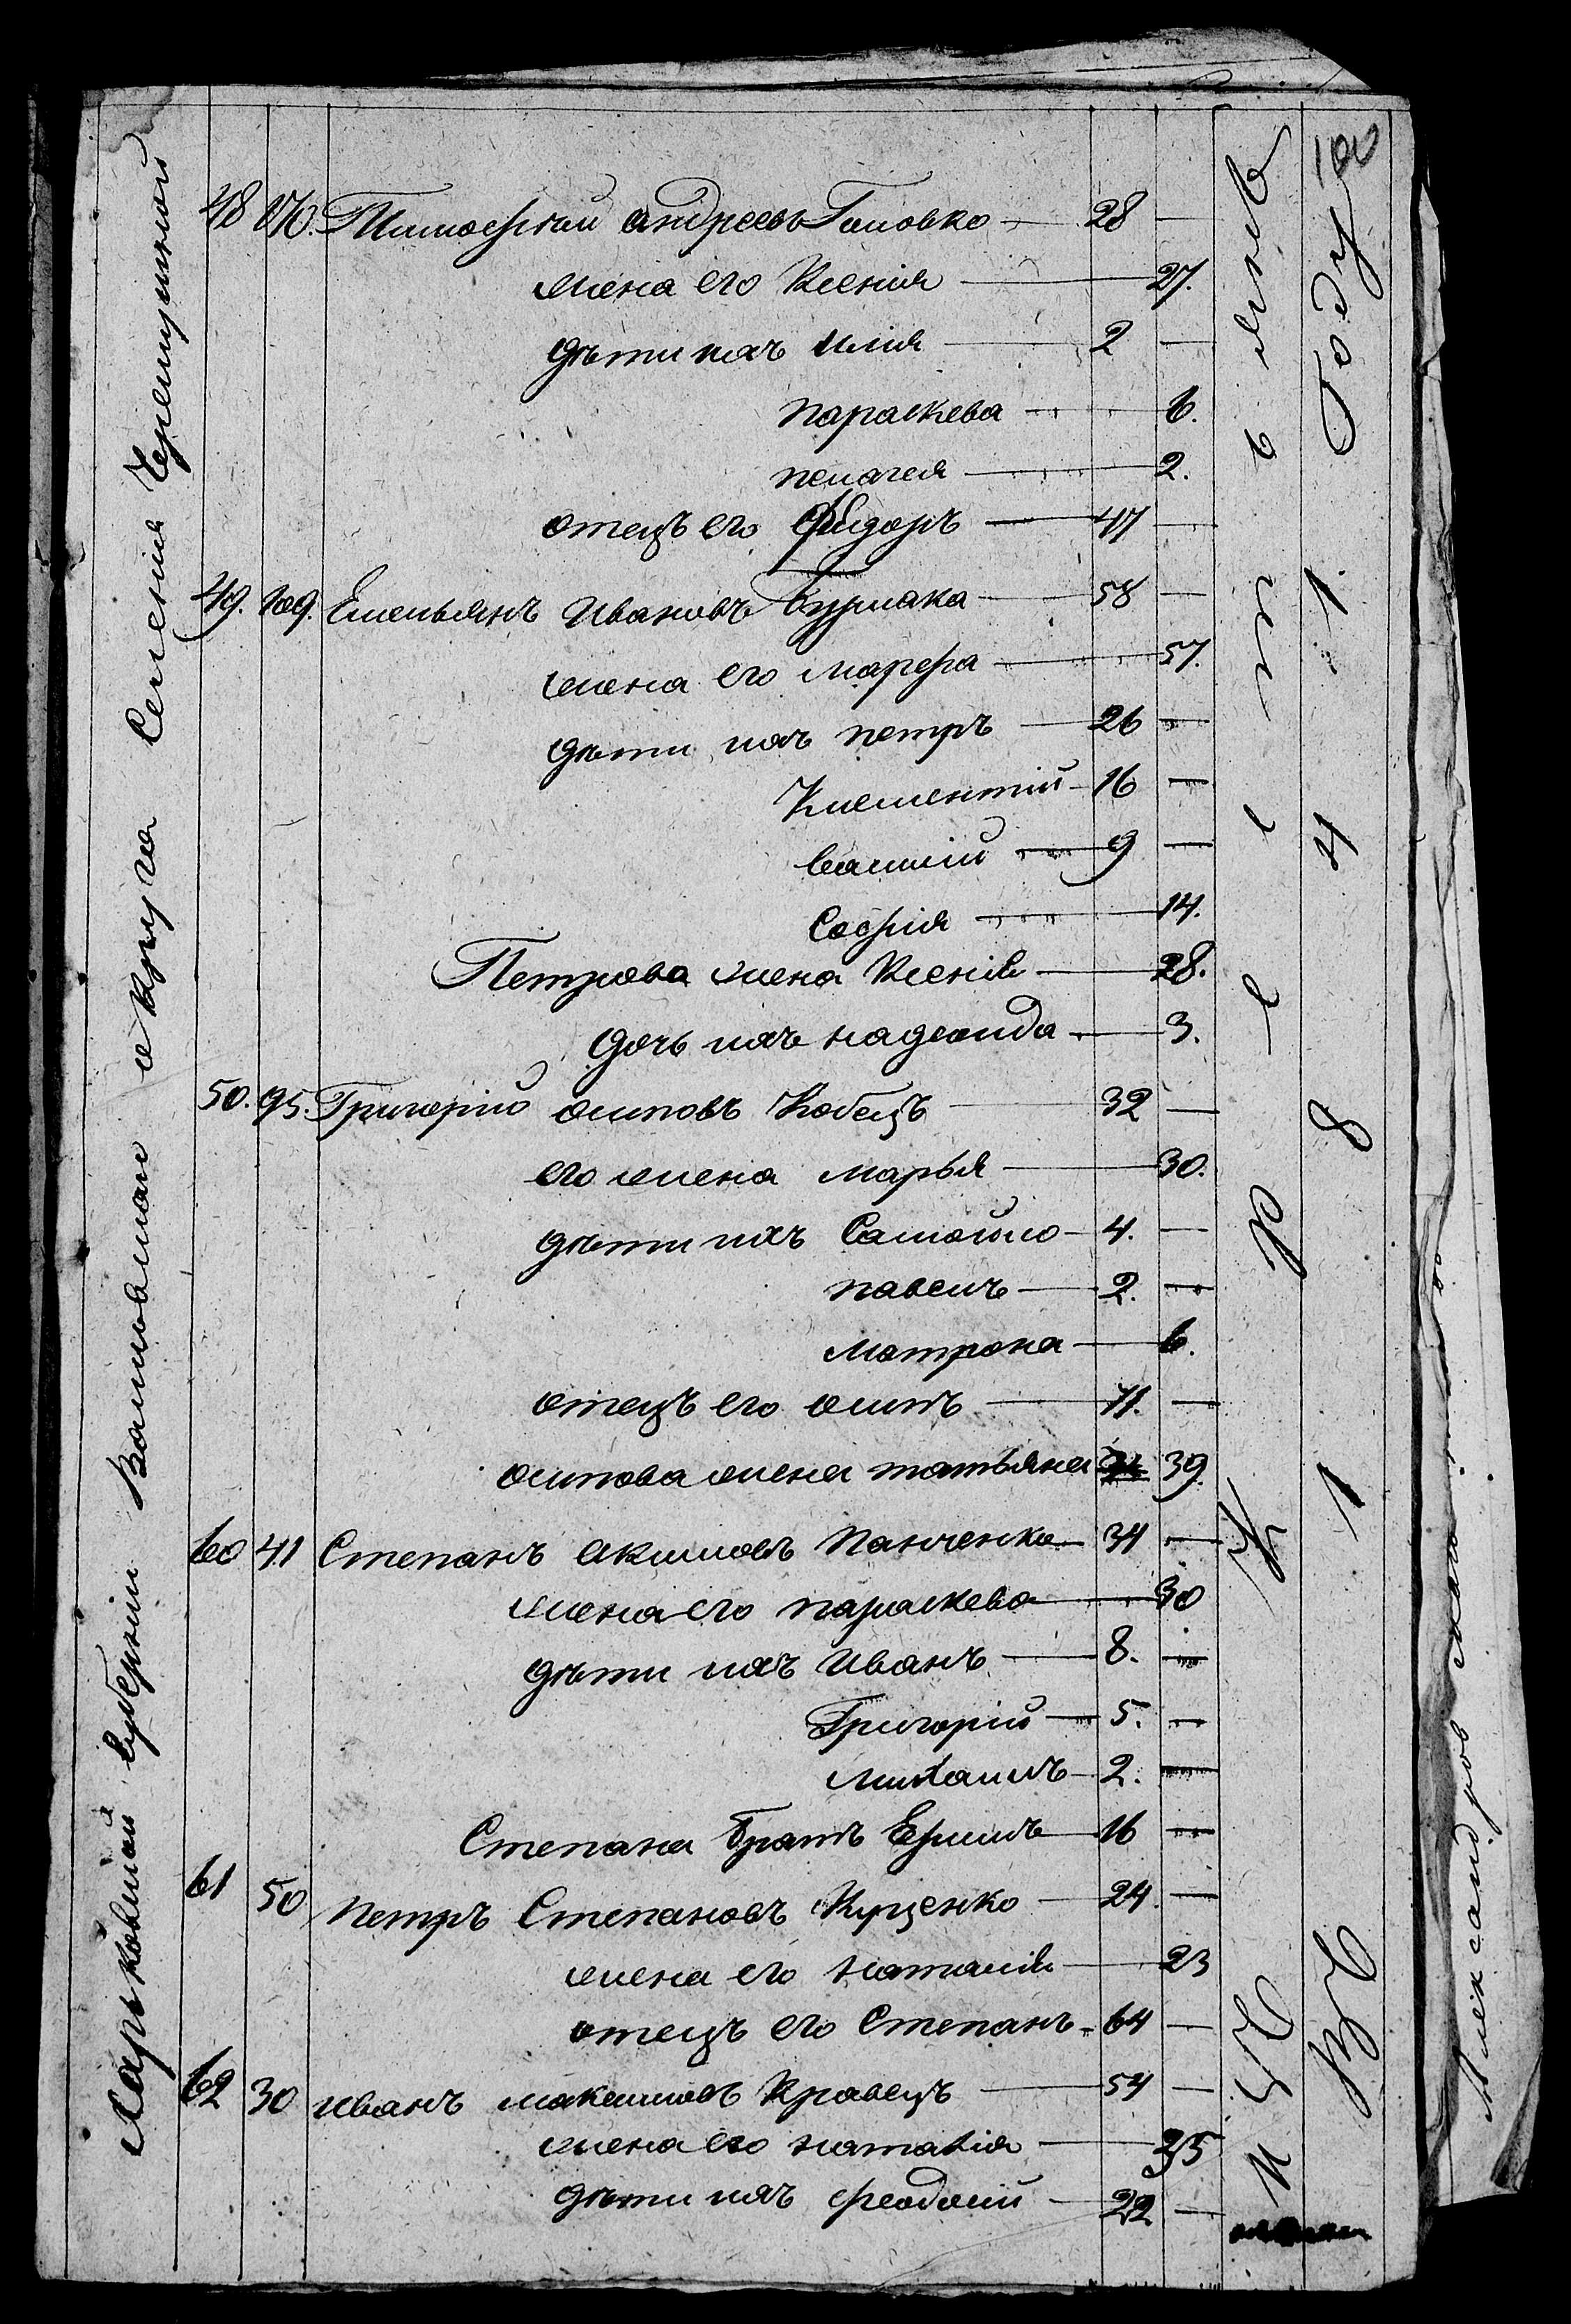 100
48 Тимофей андреевъ Головко — 28 —
жена его Ксенія — 27.
дѣти ихъ илия — 2 —
параскева — 6.
пелагея — 2.
отецъ его — 47 —
49. 109. Емельянъ Ивановъ Бурлака — 58 —
жена его марфа — 57.
дѣти ихъ петръ — 26 —
Климентий — 16 —
василий — 9 —
София — 14.
Петрова жена Ксенія — 28.
дочь ихъ надежда — 3.
50. 95. Григорий осиповъ Кобецъ — 32 —
его жена марья — 30.
дѣти ихъ Самойло — 4. —
павелъ — 2. —
матрона — 6.
отецъ его осипъ — 71. —
осипова жена татьяна 39.
60 41 Степанъ акимовъ Панченко — 34 —
жена его параскева — 30
дѣти ихъ Иванъ — 8. —
Григорій — 5. —
михаилъ — 2. —
Степана братъ Ефимъ — 16 —
61 50 петръ Степановъ Куценко — 24. —
жена его наталія — 23
отецъ его Степанъ — 64 —
62 30 иванъ максимовъ Кравецъ — 54 —
жена его наталія — 35
дѣти ихъ феодосий — 22 —
Харьковской Губерніи Валковскаго округа Селенія Черемушной
крестьянъ
въ 1841. Году